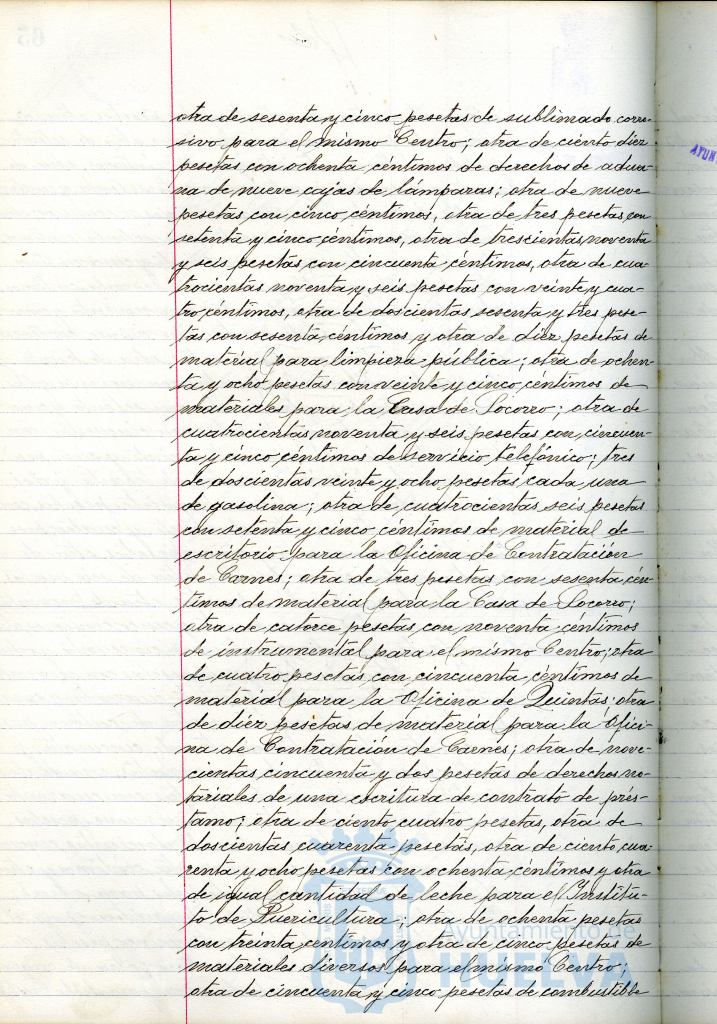 otra de sesenta y cinco pesetas de sublimado corro-
sivo para el mismo Centro; otra de ciento diez
pesetas con ochenta céntimos de derechos de adua-
na de nueve cajas de lámparas; otra de nueve
pesetas con cinco céntimos, otra de tres pesetas con
setenta y cinco céntimos, otra de trescientas noventa
y seis pesetas con cincuenta céntimos, otra de cua-
trocientas noventa y seis pesetas con veinte y cua-
tro céntimos, otra de doscientas sesenta y tres pese-
tas con sesenta céntimos y otra de diez pesetas de
material para limpieza pública; otra de ochen-
ta y ocho pesetas con veinte y cinco céntimos de
materiales para la Casa de Socorro; otra de
cuatrocientas noventa y seis pesetas con cincuen-
ta y cinco céntimos de servicio telefónico; tres
de doscientas veinte y ocho pesetas cada una
de gasolina; otra de cuatrocientas seis pesetas
con setenta y cinco céntimos de material de
escritorio para la Oficina de Contratación
de Carnes; otra de tres pesetas con sesenta cén-
timos de material para la Casa de Socorro;
otra de catorce pesetas con noventa céntimos
de instrumental para el mismo Centro; otra
de cuatro pesetas con cincuenta céntimos de
material para la Oficina de Quintas; otra
de diez pesetas de material para la Ofici-
na de Contratación de Carnes; otra de nove-
cientas cincuenta y dos pesetas de derechos no-
tariales de una escritura de contrato de prés-
tamo; otra de ciento cuatro pesetas, otra de
doscientas cuarenta pesetas, otra de ciento cua-
renta y ocho pesetas con ochenta céntimos y otra
de igual cantidad de leche para el Institu-
to de Puericultura; otra de ochenta pesetas
con treinta céntimos y otra de cinco pesetas de
materiales diversos para el mismo Centro;
otra de cincuenta y cinco pesetas de combustible
Ayuntamiento de
HUELVA
AYUN
65